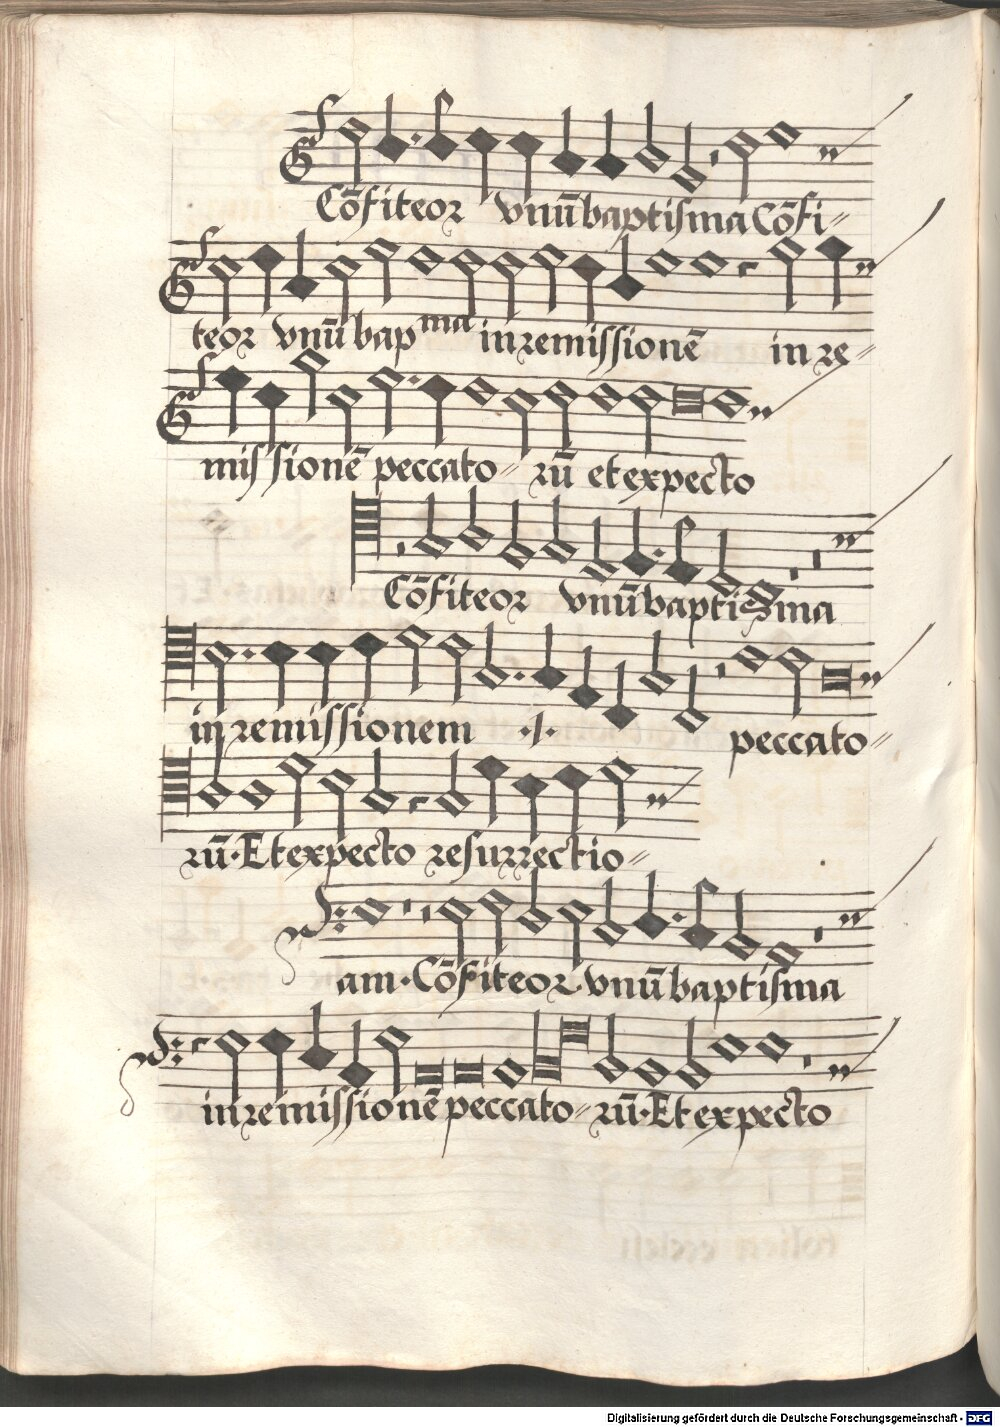 Cōfiteor vnū baptisma Cōfi-
teor vnū bapma in remissionē in re-
missionē peccato- rū et expecto
Cōfiteor vnū baptisma
in remissionem ·|· peccato-
rū· Et expecto resurrectio-
am· Cōfiteor vnū baptisma
in remissionē peccato- rū· Et expecto
Digitalisierung gefördert durch die Deutsche Forschungsgemeinschaft - DFG